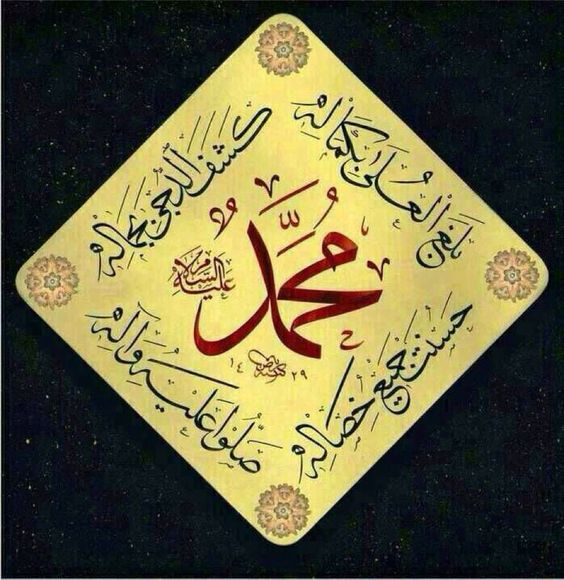 بلغ العلى بكماله
كشف الدجى بجماله
حسنت جميع خصاله
صلوا عليه وآله
محمد
عليه السلام
١٤٢٩